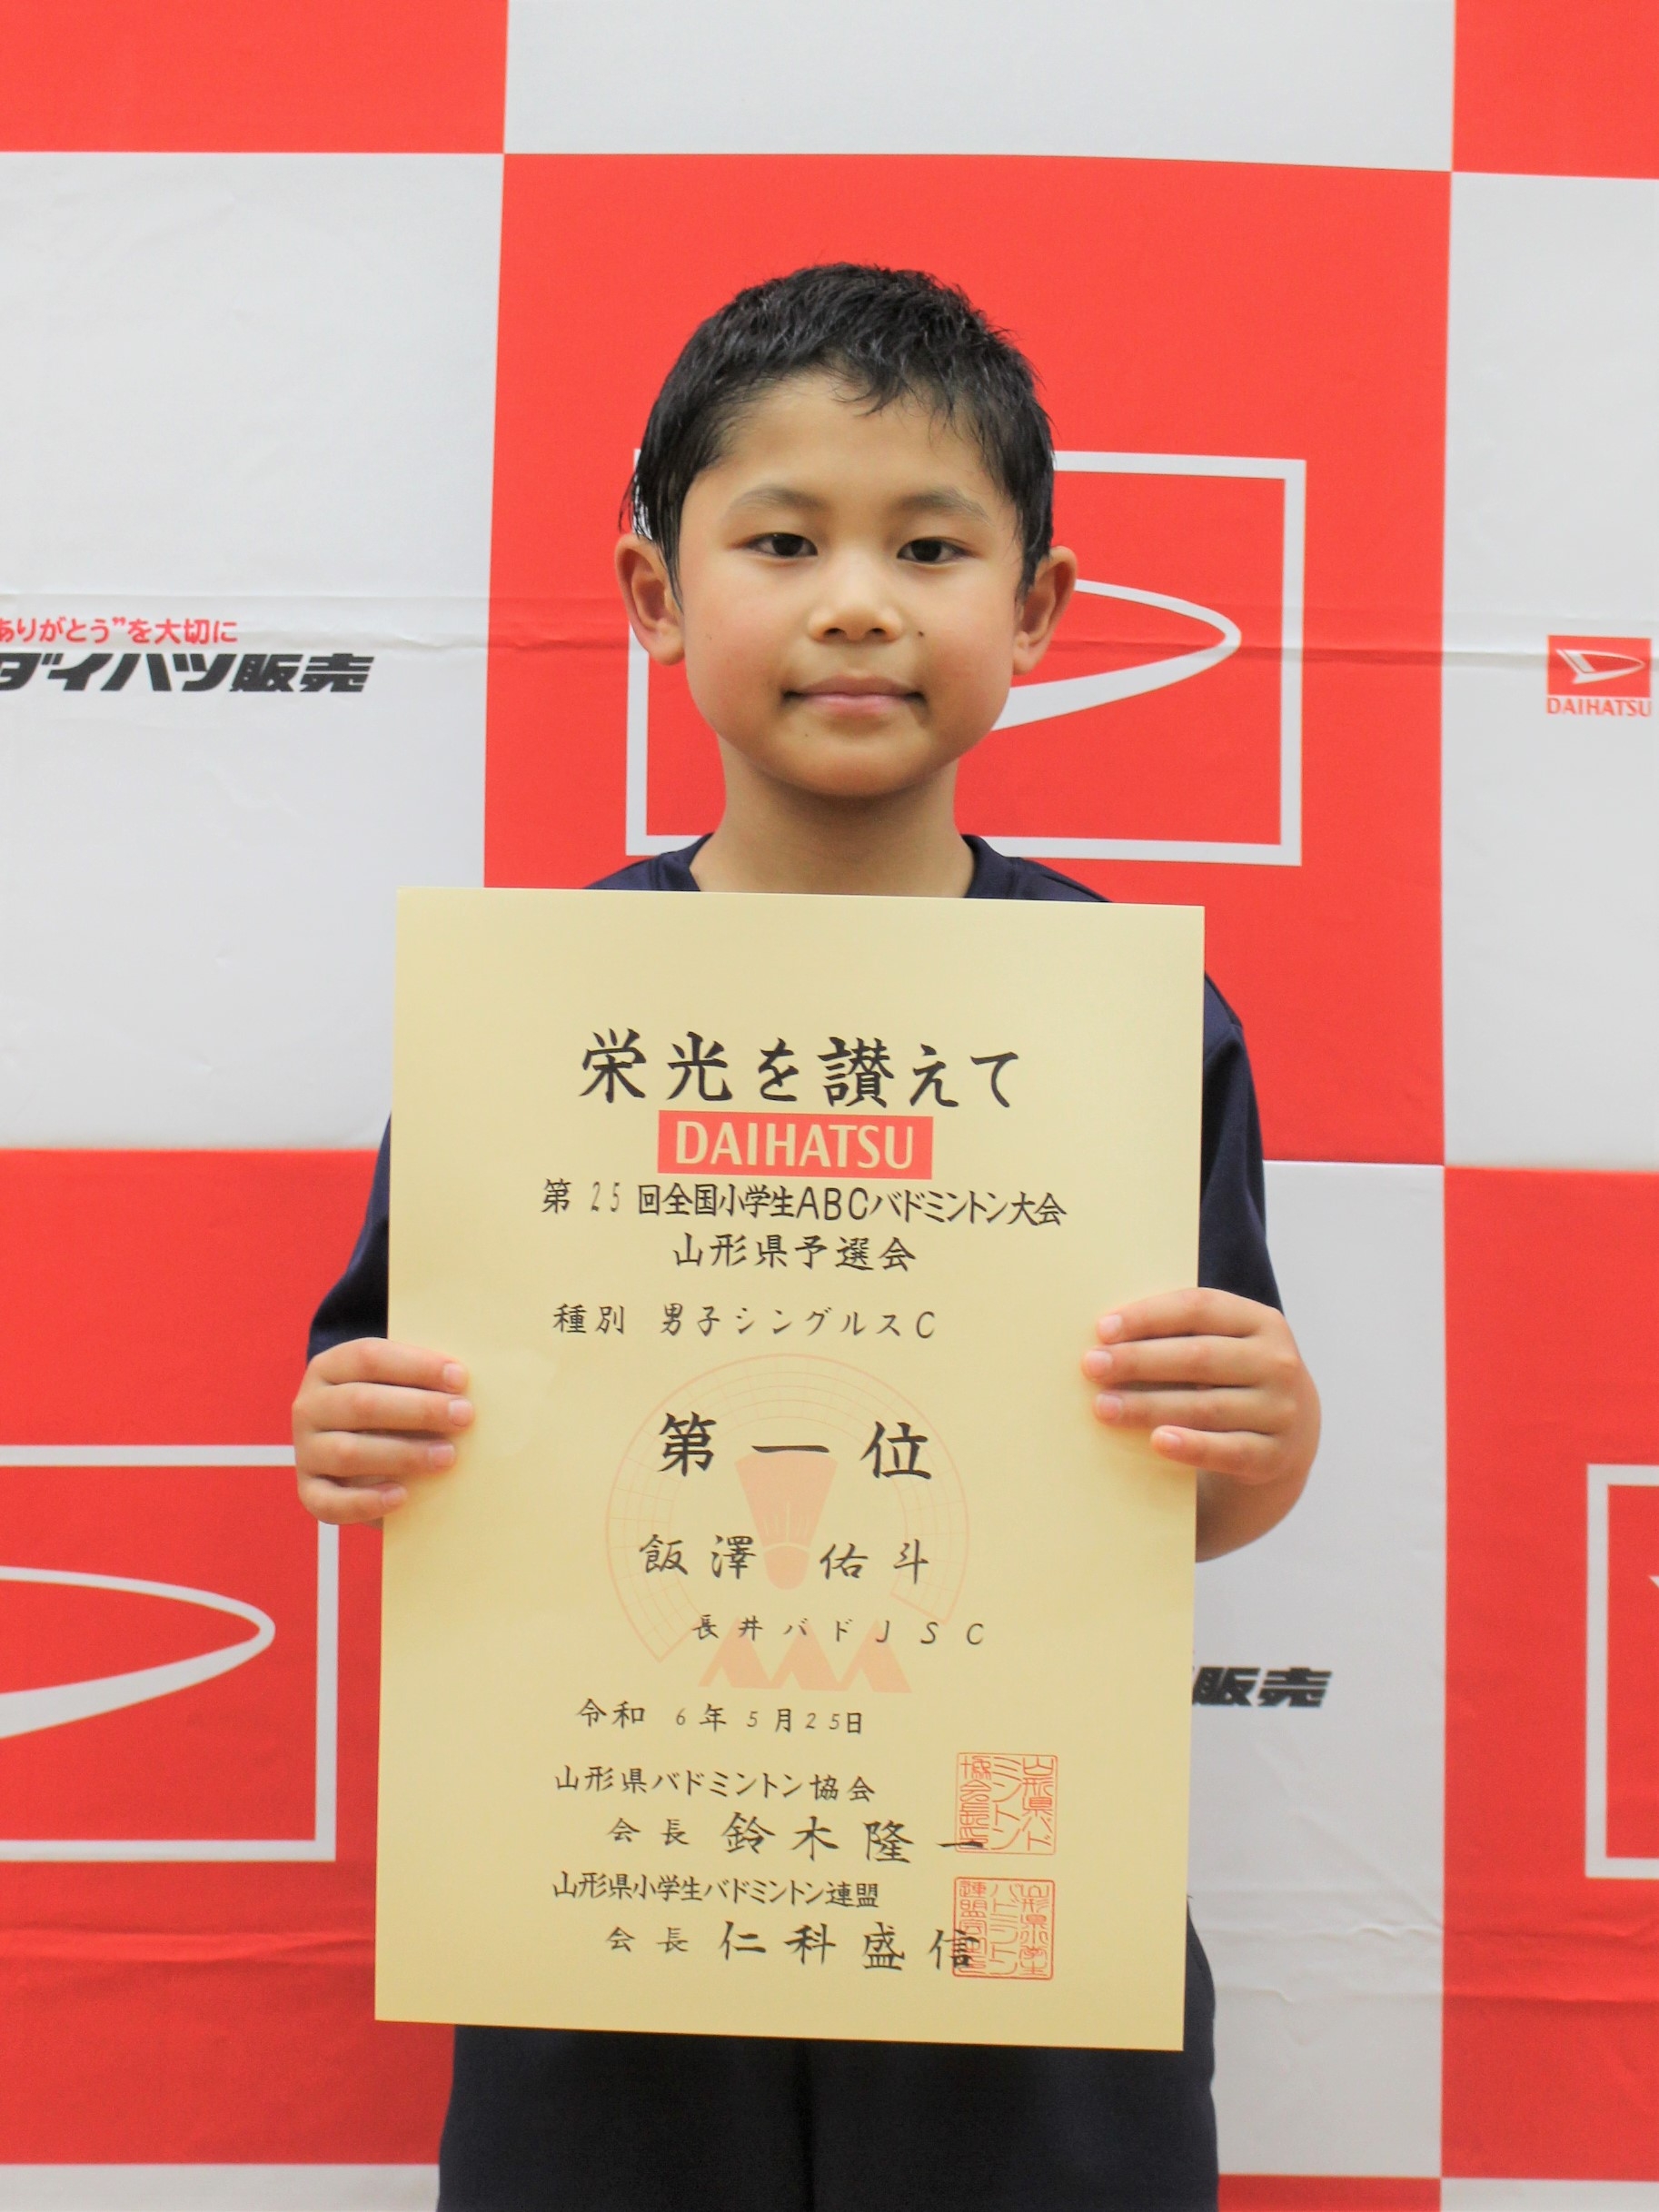 ありがとう”を大切に
ダイハツ販売
DAIHATSU
栄光を讃えて
DAIHATSU
第25回全国小学生ABCバドミントン大会
山形県予選会
種別 男子シングルスC
第一位
飯澤 佑斗
長井バドJSC
令和 6年5月25日
山形県バドミントン協会
会長 鈴木隆一
山形県小学生バドミントン連盟
会長 仁科盛信
販売